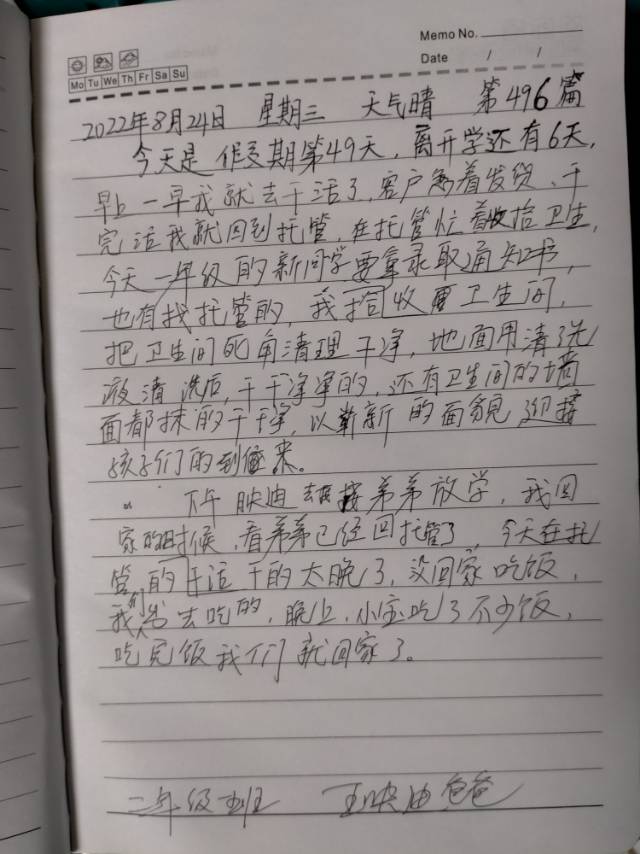 Memo No.
Date / /
Mo Tu We Th Fr Sa Su
2022年8月24日 星期三 天气晴 第496篇
今天是假期第49天,离开学还有6天,
早上一早我就去干活了,客户急着发货、干
完活我就回到托管,在托管忙着收拾卫生,
今天一年级的新同学要拿录取通知书,
也有找托管的,我拾收卫生间,
把卫生间死角清理干净,地面用清洗
液清洗后,干干净净的,还有卫生间的墙
面都抹的干干净,以崭新的面貌迎接
孩子们的到来。
下午映迪去接弟弟放学,我回
家的时候,看弟弟已经回托管了,今天在托
管的干活干的太晚了,没回家吃饭,
我们出去吃的,晚上,小宝吃了不少饭,
吃完饭我们就回家了。
二年级五班 王映迪爸爸